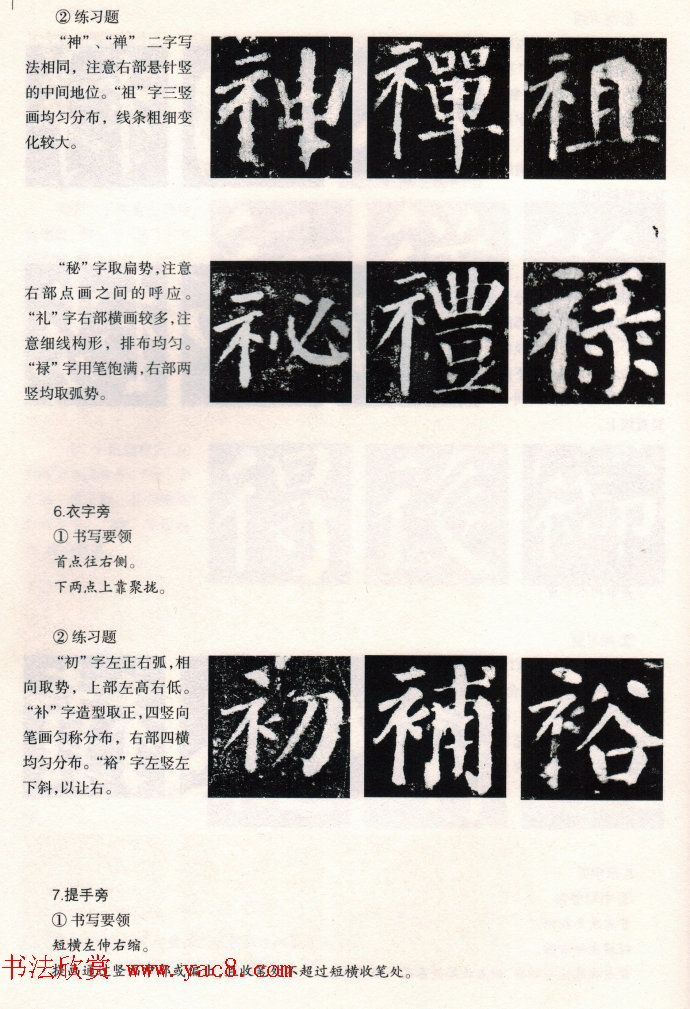 ② 练习题
“神”、“禅” 二字写
法相同，注意右部悬针竖
的中间地位。“祖”字三竖
画均匀分布，线条粗细变
化较大。
神 禪 祖
“秘”字取扁势，注意
右部点画之间的呼应。
“礼”字右部横画较多，注
意细线构形，排布均匀。
“禄”字用笔饱满，右部两
竖均取弧势。
祕 禮 禄
6.衣字旁
① 书写要领
首点往右侧。
下两点上靠聚拢。
② 练习题
“初”字左正右弧，相
向取势，上部左高右低。
“补”字造型取正，四竖向
笔画匀称分布，右部四横
均匀分布。“裕”字左竖左
下斜，以让右。
初 補 裕
7.提手旁
① 书写要领
短横左伸右缩。
不超过短横收笔处。
书法欣赏 www.yac8.com